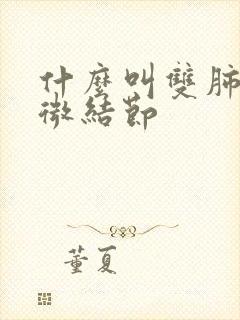 什麽叫雙肺
微結節
董夏